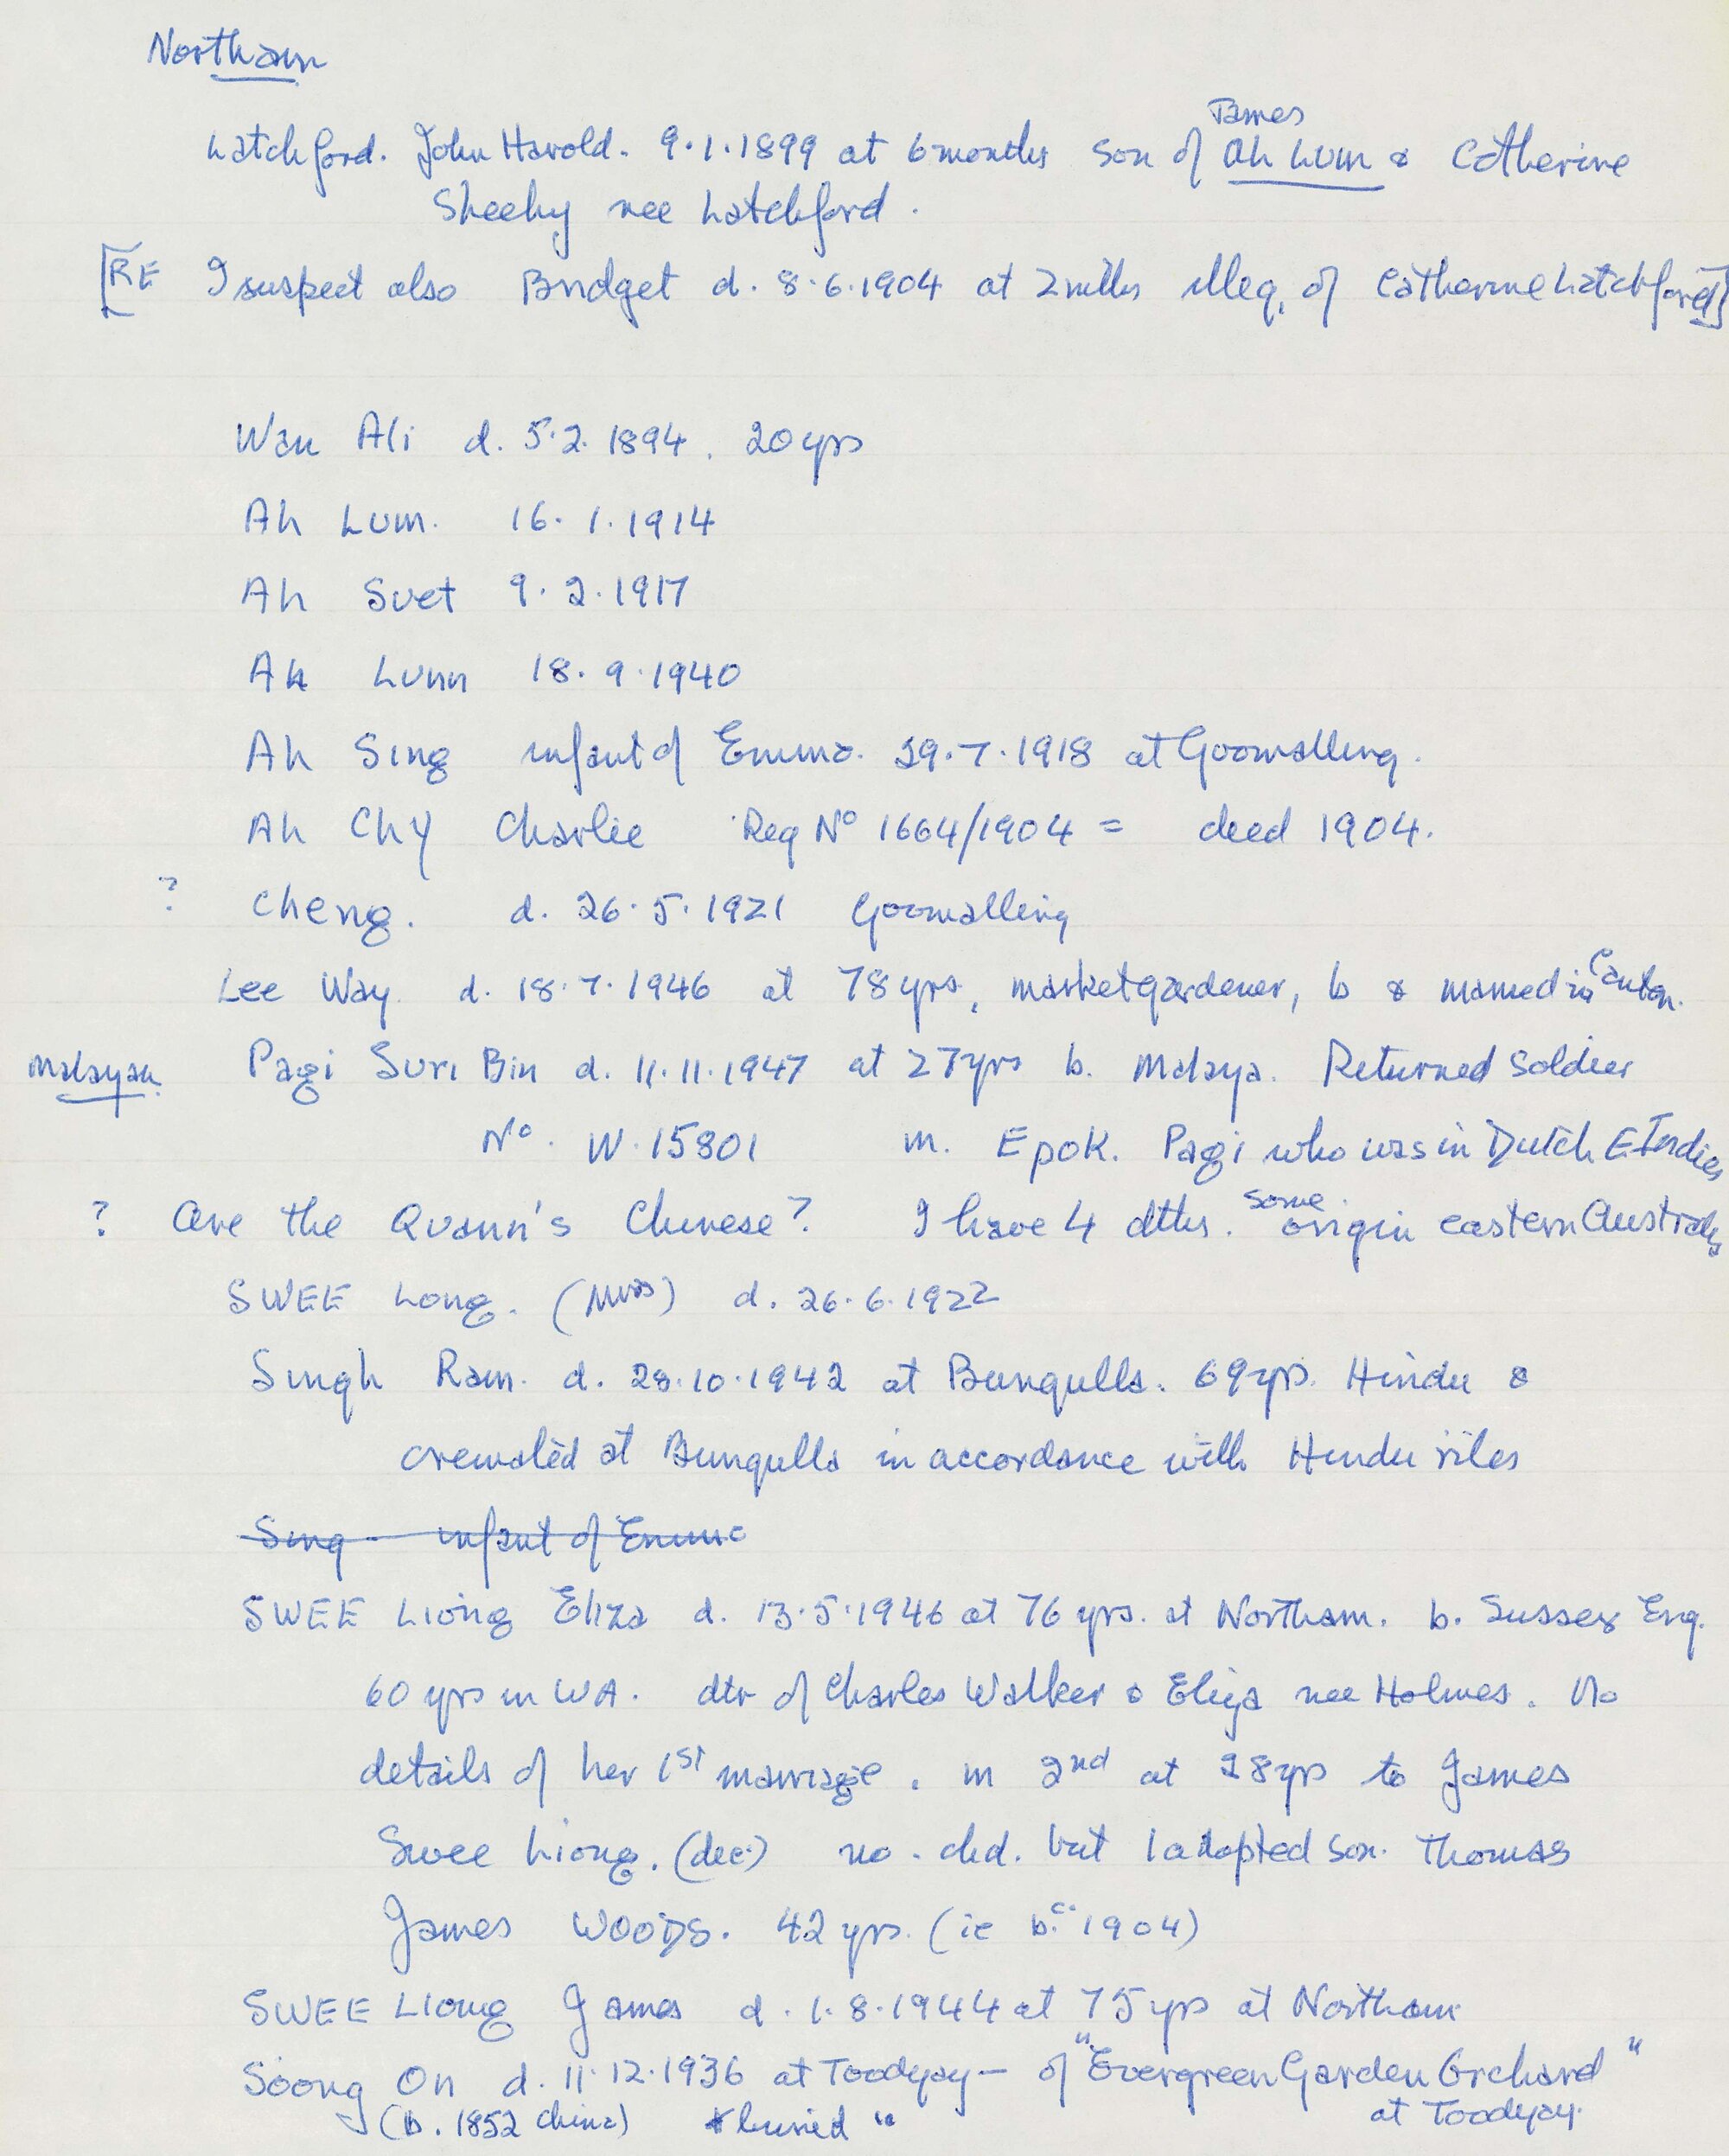 Northam
James
Latchford. John Harold. 9.1.1899 at 6 months son of Ah Lum & Catherine
Sheehy nee Latchford.
[RE I suspect also Bridget d. 8.6.1904 at 2 mths illeg. of Catherine Latchford]
Wan Ali d. 5.2.1894. 20 yrs
Ah Lum. 16.1.1914
Ah Suet 9.2.1917
Ah Lunn 18.9.1940
Ah Sing infant of Emma. 29.7.1918 at Goomalling.
Ah Chy Charlie Reg No 1664/1904 = deed 1904.
? Cheng. d. 26.5.1921 Goomalling
Lee Way. d. 18.7.1946 at 78 yrs, market gardener, b & married in Canton.
Malayan. Pagi Suri Bin d. 11.11.1947 at 27 yrs b. Malaya. Returned Soldier
No. W.15801 m. Epok. Pagi who was in Dutch E Indies
? Are the Quann's Chinese? I have 4 dths. some origin eastern Australia
SWEE Long. (Mrs) d. 26.6.1922
Singh Ram. d. 28.10.1942 at Bungulla. 69 yrs. Hindu &
cremated at Bungulla in accordance with Hindu rites
Sing - infant of Emma
SWEE Liong Eliza d. 13.5.1946 at 76 yrs. at Northam. b. Sussex Eng.
60 yrs in WA. dtr of Charles Walker & Eliza nee Holmes. No
details of her 1st marriage. m 2nd at 28 yrs to James
Swee Liong. (dec) no. chd. but 1 adopted son. Thomas
James WOODS. 42 yrs. (ie b.c. 1904)
SWEE Liong James d. 1.8.1944 at 75 yrs at Northam
Soong On d. 11.12.1936 at Toodyay - of "Evergreen Garden Orchard"
(b. 1852 China) & buried " at Toodyay.